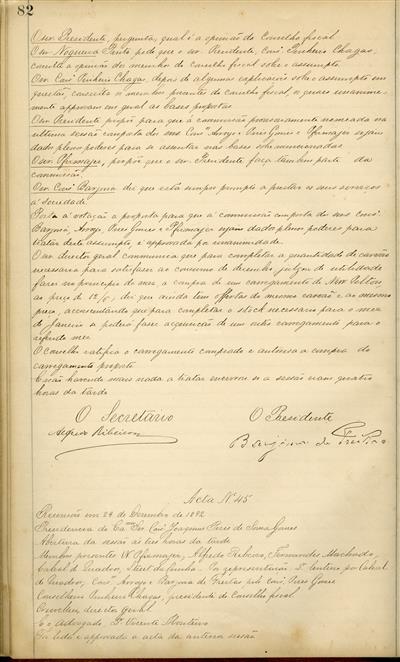 82
O snr. Presidente, pergunta qual é a opinião do Conselho fiscal
O snr. Nogueira Pinto pede que o snr. Presidente, Cons.º Pinheiro Chagas,
consulte a opinião dos membros do conselho fiscal sobre o assumpto.
O snr. Cons.º Pinheiro Chagas, depois de algumas explicações sobre o assumpto em
questão, consulta os membros presentes do conselho fiscal, os quaes unanime-
mente approvam em geral as bases propostas
O snr. Presidente propõe para que á commissão provisoriamente nomeada na
ultima sessão composta dos snrs Cons.º Arroyo, Pires Gomes e Pfirmajer sejam
dados plenos poderes para se assentar nas bases sobremencionadas
O snr. Pfirmajer, propõe que o snr. Presidente faça tambem parte da
commissão.
O snr. Cons.º Barjona diz que está sempre prompto a prestar os seus serviços
á sociedade
Posta á votação a proposta para que á commissão composta dos snrs Cons.º
Barjona, Arroyo, Pires Gomes e Pfirmajer sejam dados plenos poderes para
tratar deste assumpto, é approvada por unanimidade.
O snr. director geral communica que para completar a quantidade de carvão
necessaria para satisfazer ao consumo de dezembro, julgou de utilidade
fazer no principio do mez, a compra de um carregamento de New Pelton
ao preço de 12/6; diz que ainda tem offertas do mesmo carvão e ao mesmo
preço, accrescentando que para completar o stock necessario para o mez
de Janeiro se poderá fazer acquisição de um outro carregamento para o
referido mez
O Conselho ratifica o carregamento comprado e autorisa a compra do
carregamento proposto
E não havendo mais nada a tratar encerrou-se a sessão eram quatro
horas da tarde
O Secretario
O Presidente
Alfredo Ribeiro
Barjona de Freitas
Acta Nº 45
Reunião em 29 de Dezembro de 1892
Presidencia do Ex.mo Snr. Cons.º Joaquim Pires de Sousa Gomes
Abertura da sessão ás tres horas da tarde
Membros presentes W. Pfirmajer, Alfredo Ribeiro, Fernandes Machado,
Cabral de Quadros,
de Quadros, Cons.º Arroyo e Barjona de Freitas pelo Cons.º Pires Gomes
Conselheiro Pinheiro Chagas, presidente do Conselho fiscal
Conselheiro director geral
E o advogado, Dr. Vicente Monteiro
Foi lida e approvada a acta da anterior sessão